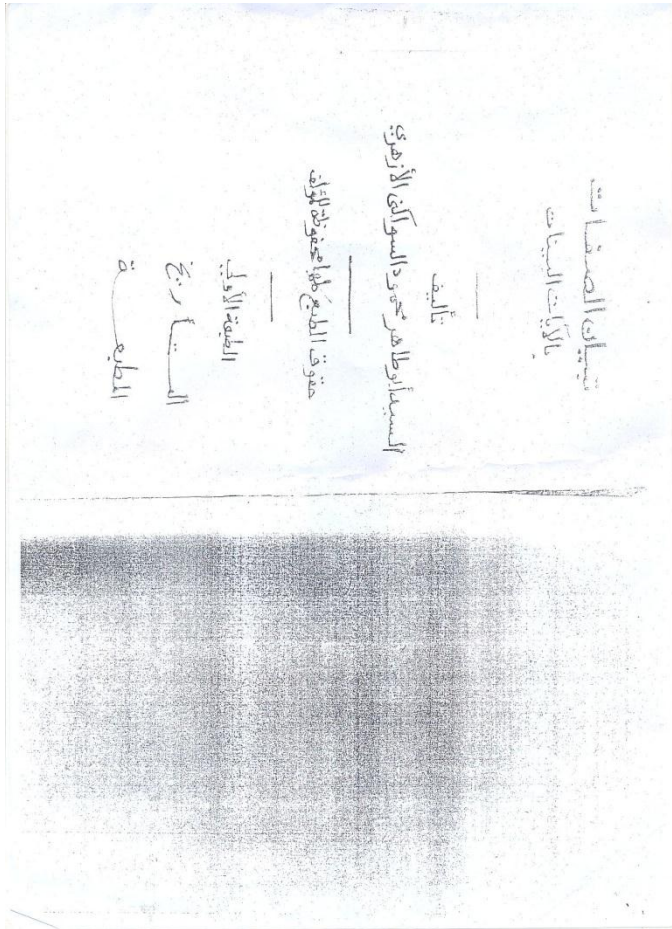 تبيان الصفات
بالآيات البينات
تأليف
السيد أبو طاهر محمود السواكنى الأزهري
حقوق الطبع كلها محفوظة للمؤلف
الطبعة الأولى
التاريخ
المطبعة